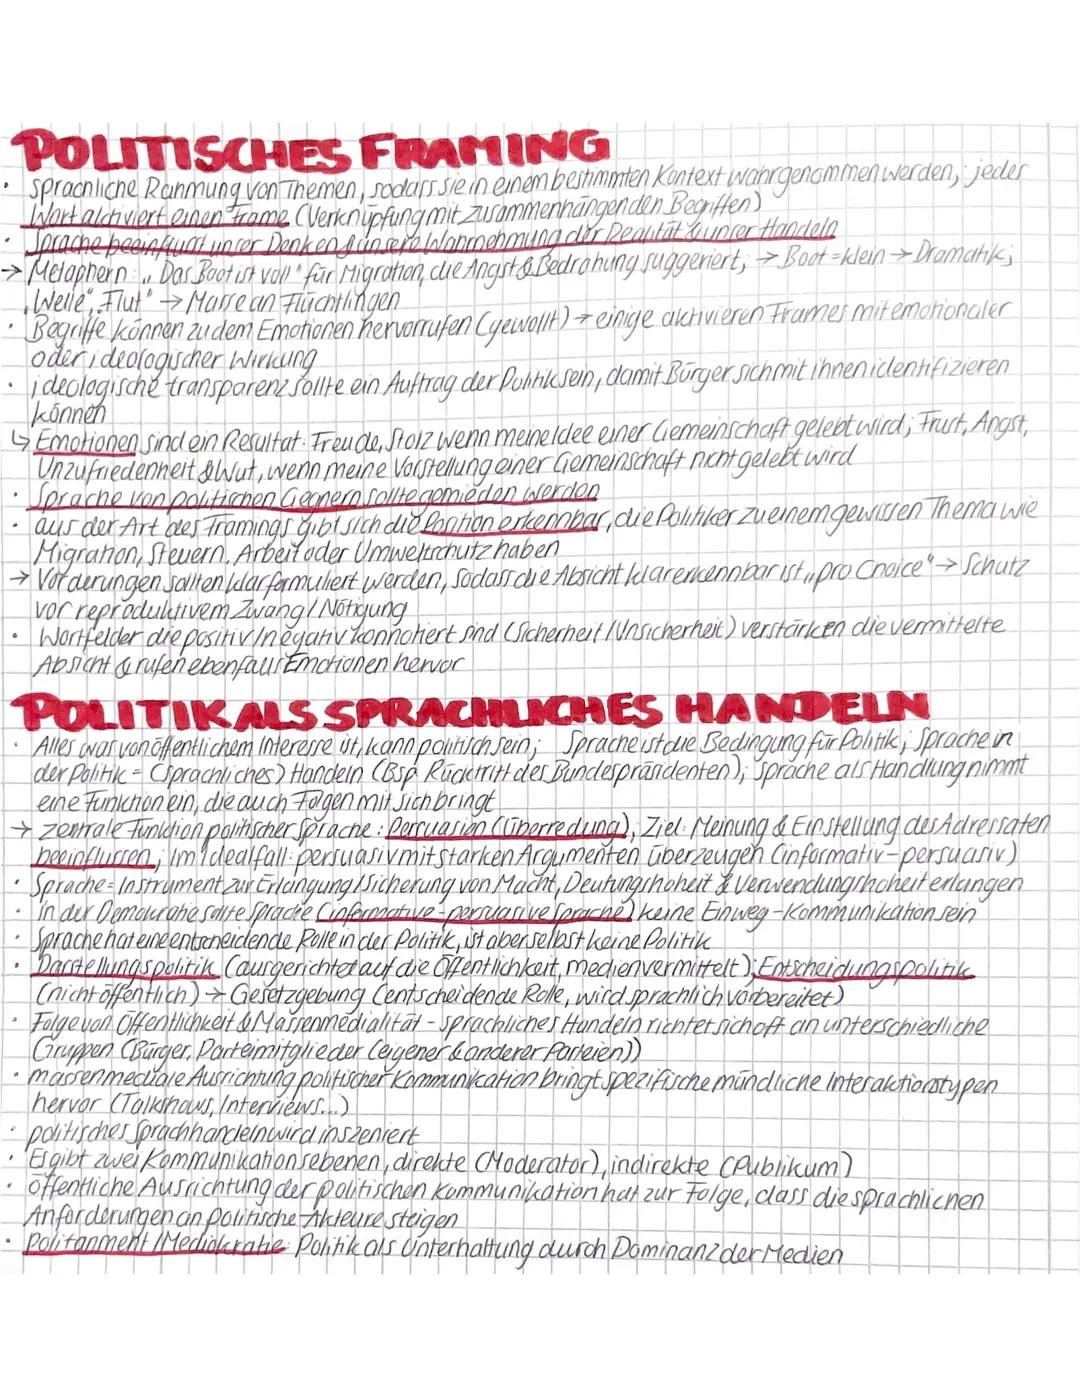 POLITISCHES FRAMING
• sprachliche Rahmung von Themen, sodass sie in einem bestimmten Kontext wahrgenommen werden; jedes
Wort aktiviert einen Frame (Verknüpfung mit zusammenhängenden Begriffen)
• Sprache beeinflusst unser Denken & unsere Wahrnehmung der Realität & unser Handeln
→ Metaphern: „Das Boot ist voll" für Migration, die Angst & Bedrohung suggeriert, → Boot = klein → Dramatik;
„Welle", „Flut" → Masse an Flüchtlingen
• Begriffe können zudem Emotionen hervorrufen (gewollt) → einige aktivieren Frames mit emotionaler
oder ideologischer Wirkung
• ideologische transparenz sollte ein Auftrag der Politik sein, damit Bürger sich mit ihnen identifizieren
können
↳ Emotionen sind ein Resultat: Freude, Stolz wenn meine Idee einer Gemeinschaft gelebt wird; Frust, Angst,
Unzufriedenheit & Wut, wenn meine Vorstellung einer Gemeinschaft nicht gelebt wird
• Sprache von politischen Gegnern sollte gemieden werden
• aus der Art des Framings gibt sich die Position erkennbar, die Politiker zu einem gewissen Thema wie
Migration, Steuern, Arbeit oder Umweltschutz haben
→ Vorderungen sollten klar formuliert werden, sodass die Absicht klar erkennbar ist „pro Choice" → Schutz
vor reproduktivem Zwang / Nötigung
• Wortfelder die positiv/negativ konnotiert sind (Sicherheit / Unsicherheit) verstärken die vermittelte
Absicht & rufen ebenfalls Emotionen hervor
POLITIK ALS SPRACHLICHES HANDELN
• Alles was von öffentlichem Interesse ist, kann politisch sein; Sprache ist die Bedingung für Politik; Sprache in
der Politik = (sprachliches) Handeln (Bsp. Rücktritt des Bundespräsidenten); Sprache als Handlung nimmt
eine Funktion ein, die auch Folgen mit sich bringt
→ zentrale Funktion politischer Sprache: Persuasion (Überredung), Ziel: Meinung & Einstellung des Adressaten
beeinflussen; Im Idealfall: persuasiv mit starken Argumenten überzeugen (informativ-persuasiv)
• Sprache = Instrument zur Erlangung / Sicherung von Macht, Deutungshoheit & Verwendungshoheit erlangen
• in der Demokratie sollte Sprache (informative-persuasive Sprache) keine Einweg-Kommunikation sein
• Sprache hat eine entscheidende Rolle in der Politik, ist aber selbst keine Politik
• Darstellungspolitik (ausgerichtet auf die Öffentlichkeit, medienvermittelt); Entscheidungspolitik
(nicht öffentlich) → Gesetzgebung (entscheidende Rolle, wird sprachlich vorbereitet)
• Folge von Öffentlichkeit & Massenmedialität - sprachliches Handeln richtet sich oft an unterschiedliche
Gruppen (Bürger, Parteimitglieder (eigener & anderer Parteien))
• massenmediale Ausrichtung politischer Kommunikation bringt spezifische mündliche Interaktionstypen
hervor (Talkshows, Interviews...)
• politisches Sprachhandeln wird inszeniert
• Es gibt zwei Kommunikationsebenen, direkte (Moderator), indirekte (Publikum)
• öffentliche Ausrichtung der politischen Kommunikation hat zur Folge, dass die sprachlichen
Anforderungen an politische Akteure steigen
• Politainment / Mediokratie: Politik als Unterhaltung durch Dominanz der Medien